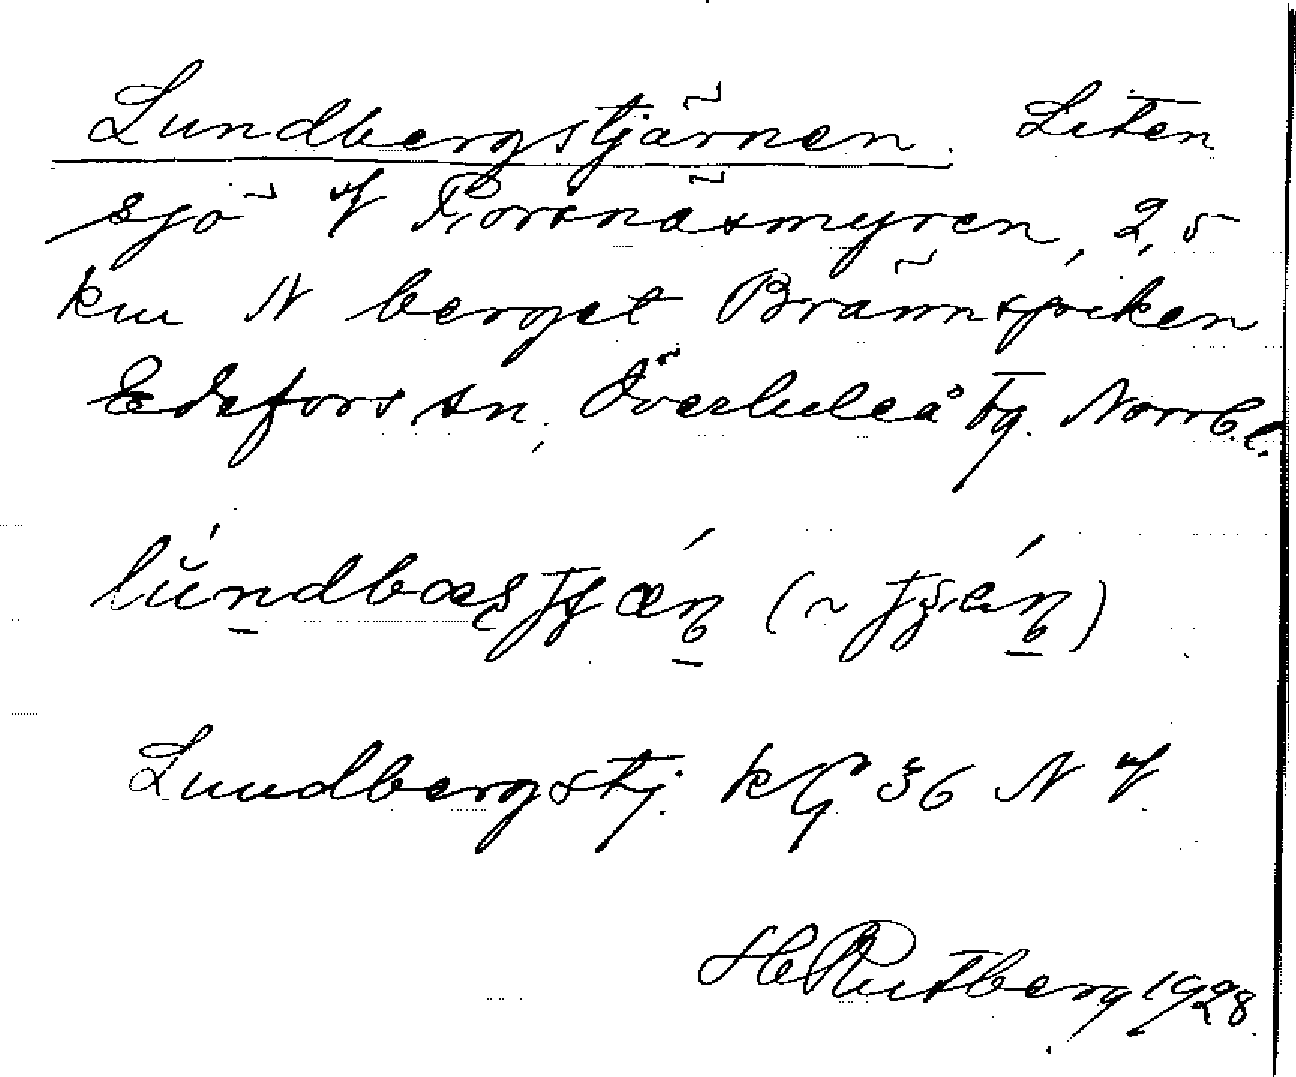 Lundbergstjärnen. Liten
sjö V Forsnäsmyren, 2,5
km N berget Brännspiken
Edefors sn, Överluleå tg. Norrb. l.
Lundbergstj. kG 36 N V.
H Rutberg 1928.